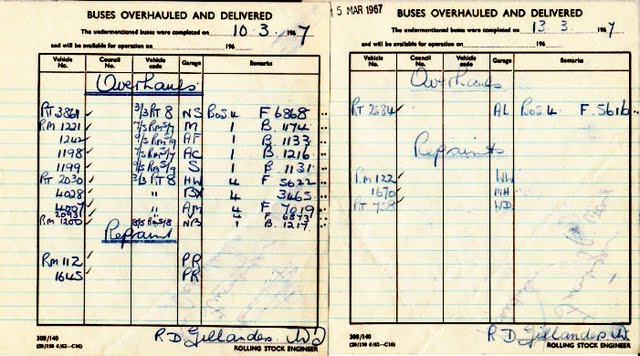 BUSES OVERHAULED AND DELIVERED
The undermentioned buses were completed on 10.3. 1967
and will be available for operation on 196
Vehicle No. Council No. Vehicle code Garage Remarks
Overhauls
RT 3861 3/3 RT 8 NS Bos 4 F 6868
RM 1221 7/5 Rm 5/9 M 1 B. 1174
1242 AF 1 B. 1133
1198 AC 1 B. 1216
1199 S 1 B. 1131
RT 2030 3/3 RT 8 HW 4 F 5622
4028 " BX 4 3465
4007 " AM 4 F 7019
RM 1200 NB 1 B. 1217
Repaint
RM 112 PR
1645 PR
R D Gillandes
308/140
ROLLING STOCK ENGINEER
5 MAR 1967
BUSES OVERHAULED AND DELIVERED
The undermentioned buses were completed on 13.3. 1967
and will be available for operation on 196
Vehicle No. Council No. Vehicle code Garage Remarks
Overhauls
RT 2584 AL Bos 4 F. 5616
Repaints
RM 122 HW
1670 MH
RT WD
R D Gillandes
308/140
ROLLING STOCK ENGINEER